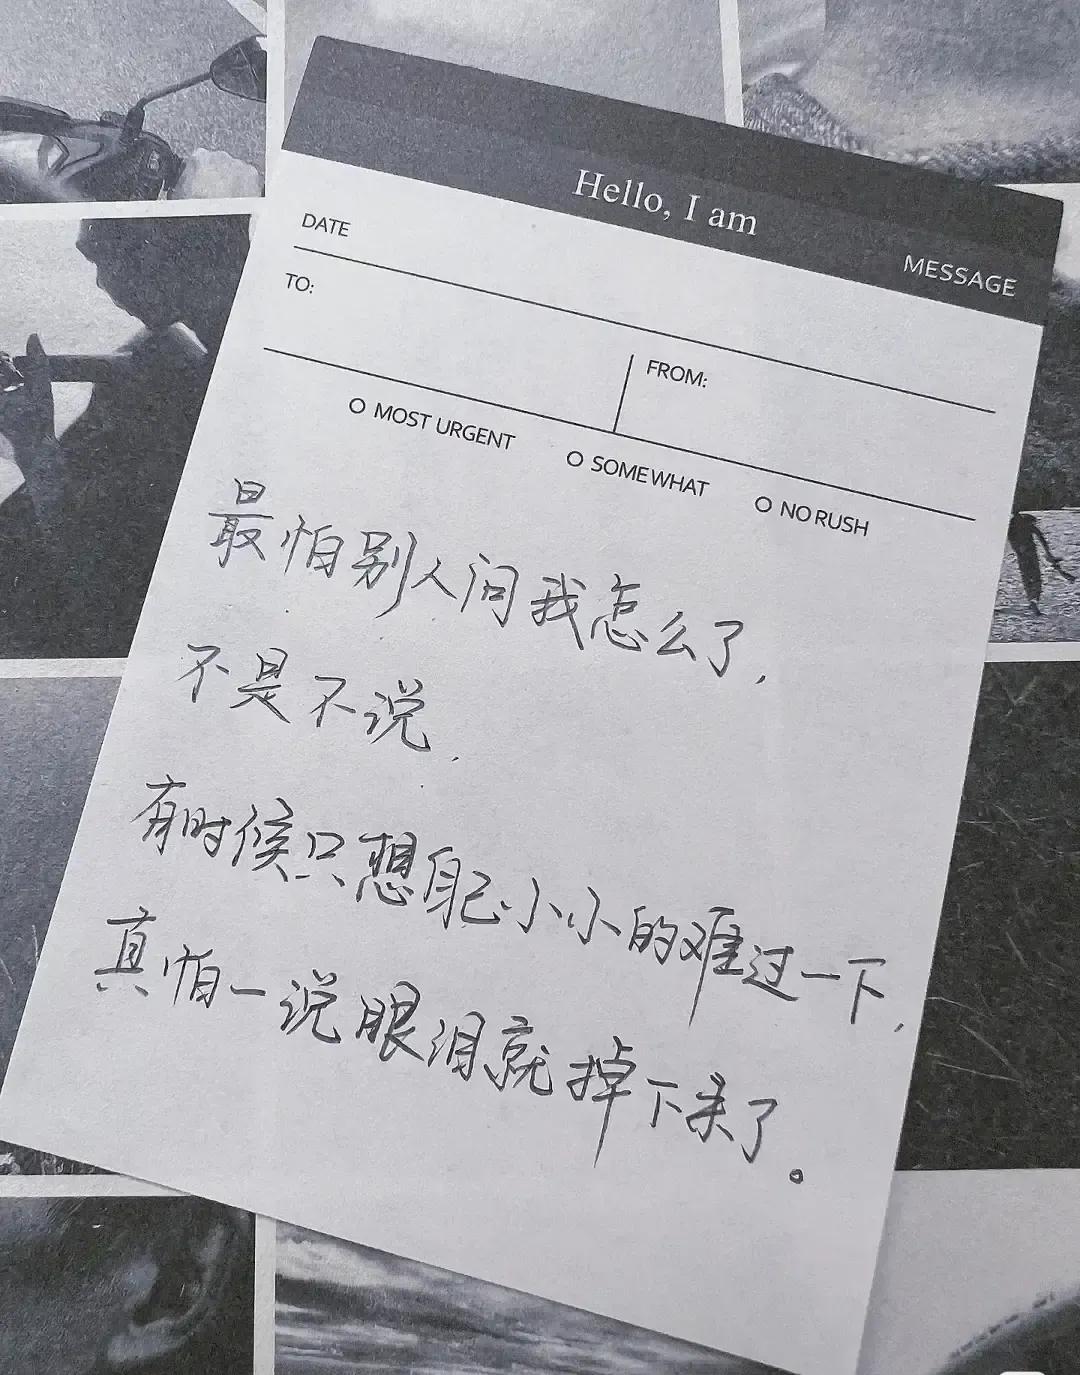 Hello, I am
MESSAGE
DATE
TO:
FROM:
O MOST URGENT O SOMEWHAT O NO RUSH
最怕别人问我怎么了,
不是不说,
有时候只想自己小小的难过一下,
真怕一说眼泪就掉下来了。